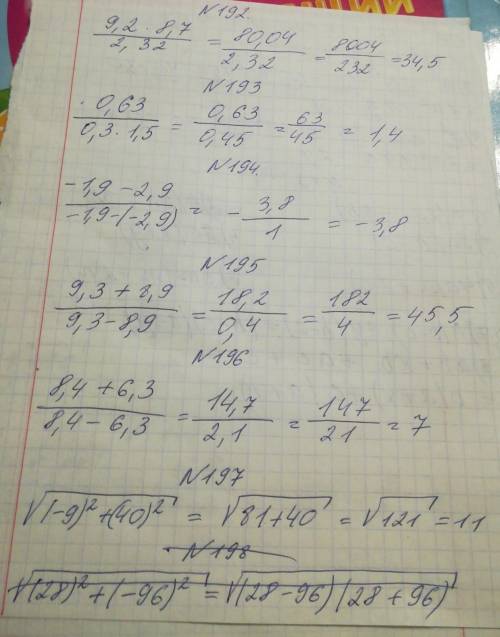 N192.
9,2 · 8,7 / 2,32 = 80,04 / 2,32 = 8004 / 232 = 34,5
N193
· 0,63 / 0,3 · 1,5 = 0,63 / 0,45 = 63 / 45 = 1,4
N194.
-1,9 - 2,9 / -1,9-(-2,9) = - 3,8 / 1 = -3,8
N195
9,3 + 8,9 / 9,3 - 8,9 = 18,2 / 0,4 = 182 / 4 = 45,5
N196
8,4 + 6,3 / 8,4 - 6,3 = 14,7 / 2,1 = 147 / 21 = 7
N197
√(-9)² + (40)² = √81+40 = √121 = 11
N198
√(28)² + (-96)² = √(28-96)(28+96)